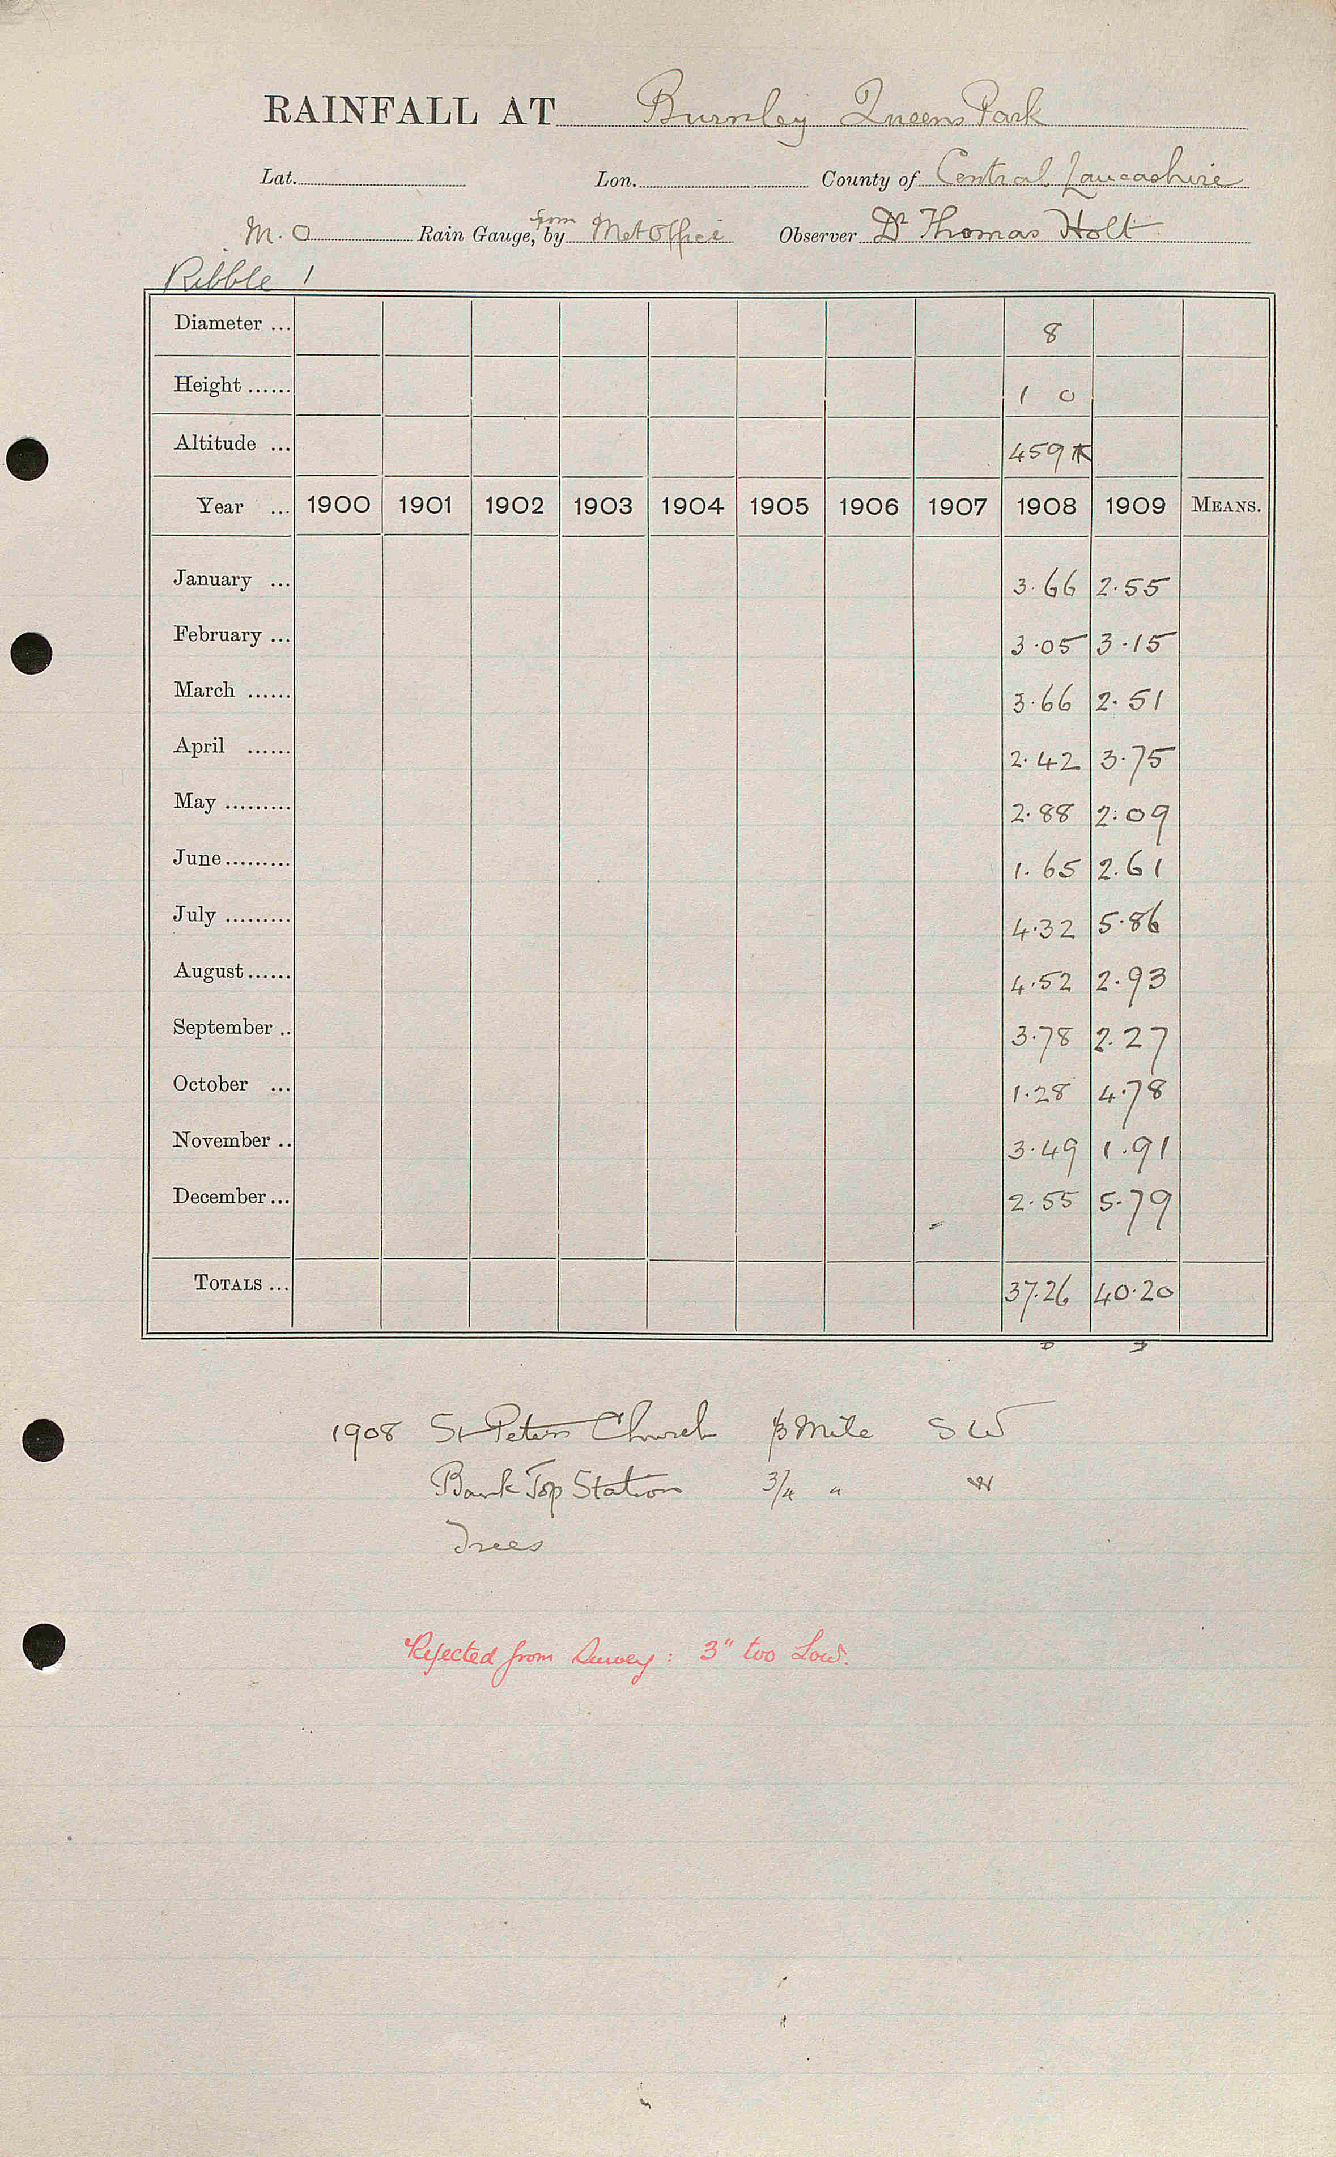 RAINFALL AT Burnley Queens Park
Lat. Lon. County of Central Lancashire
M.O Rain Gauge, from by Met Office Observer Dr Thomas Holt
Ribble 1
Diameter ... 8
Height ...... 1 0
Altitude ... 459
Year ... 1900 1901 1902 1903 1904 1905 1906 1907 1908 1909 MEANS.
January ... 3.66 2.55
February ... 3.05 3.15
March ...... 3.66 2.51
April ...... 2.42 3.75
May ......... 2.88 2.09
June ......... 1.65 2.61
July ......... 4.32 5.86
August ...... 4.52 2.93
September .. 3.78 2.27
October ... 1.28 4.78
November .. 3.49 1.91
December ... 2.55 5.79
TOTALS ... 37.26 40.20
1908 St Peters Church Mile SW
Bank Top Station 3/4 " W
Trees
Rejected from Survey : 3" too Low.